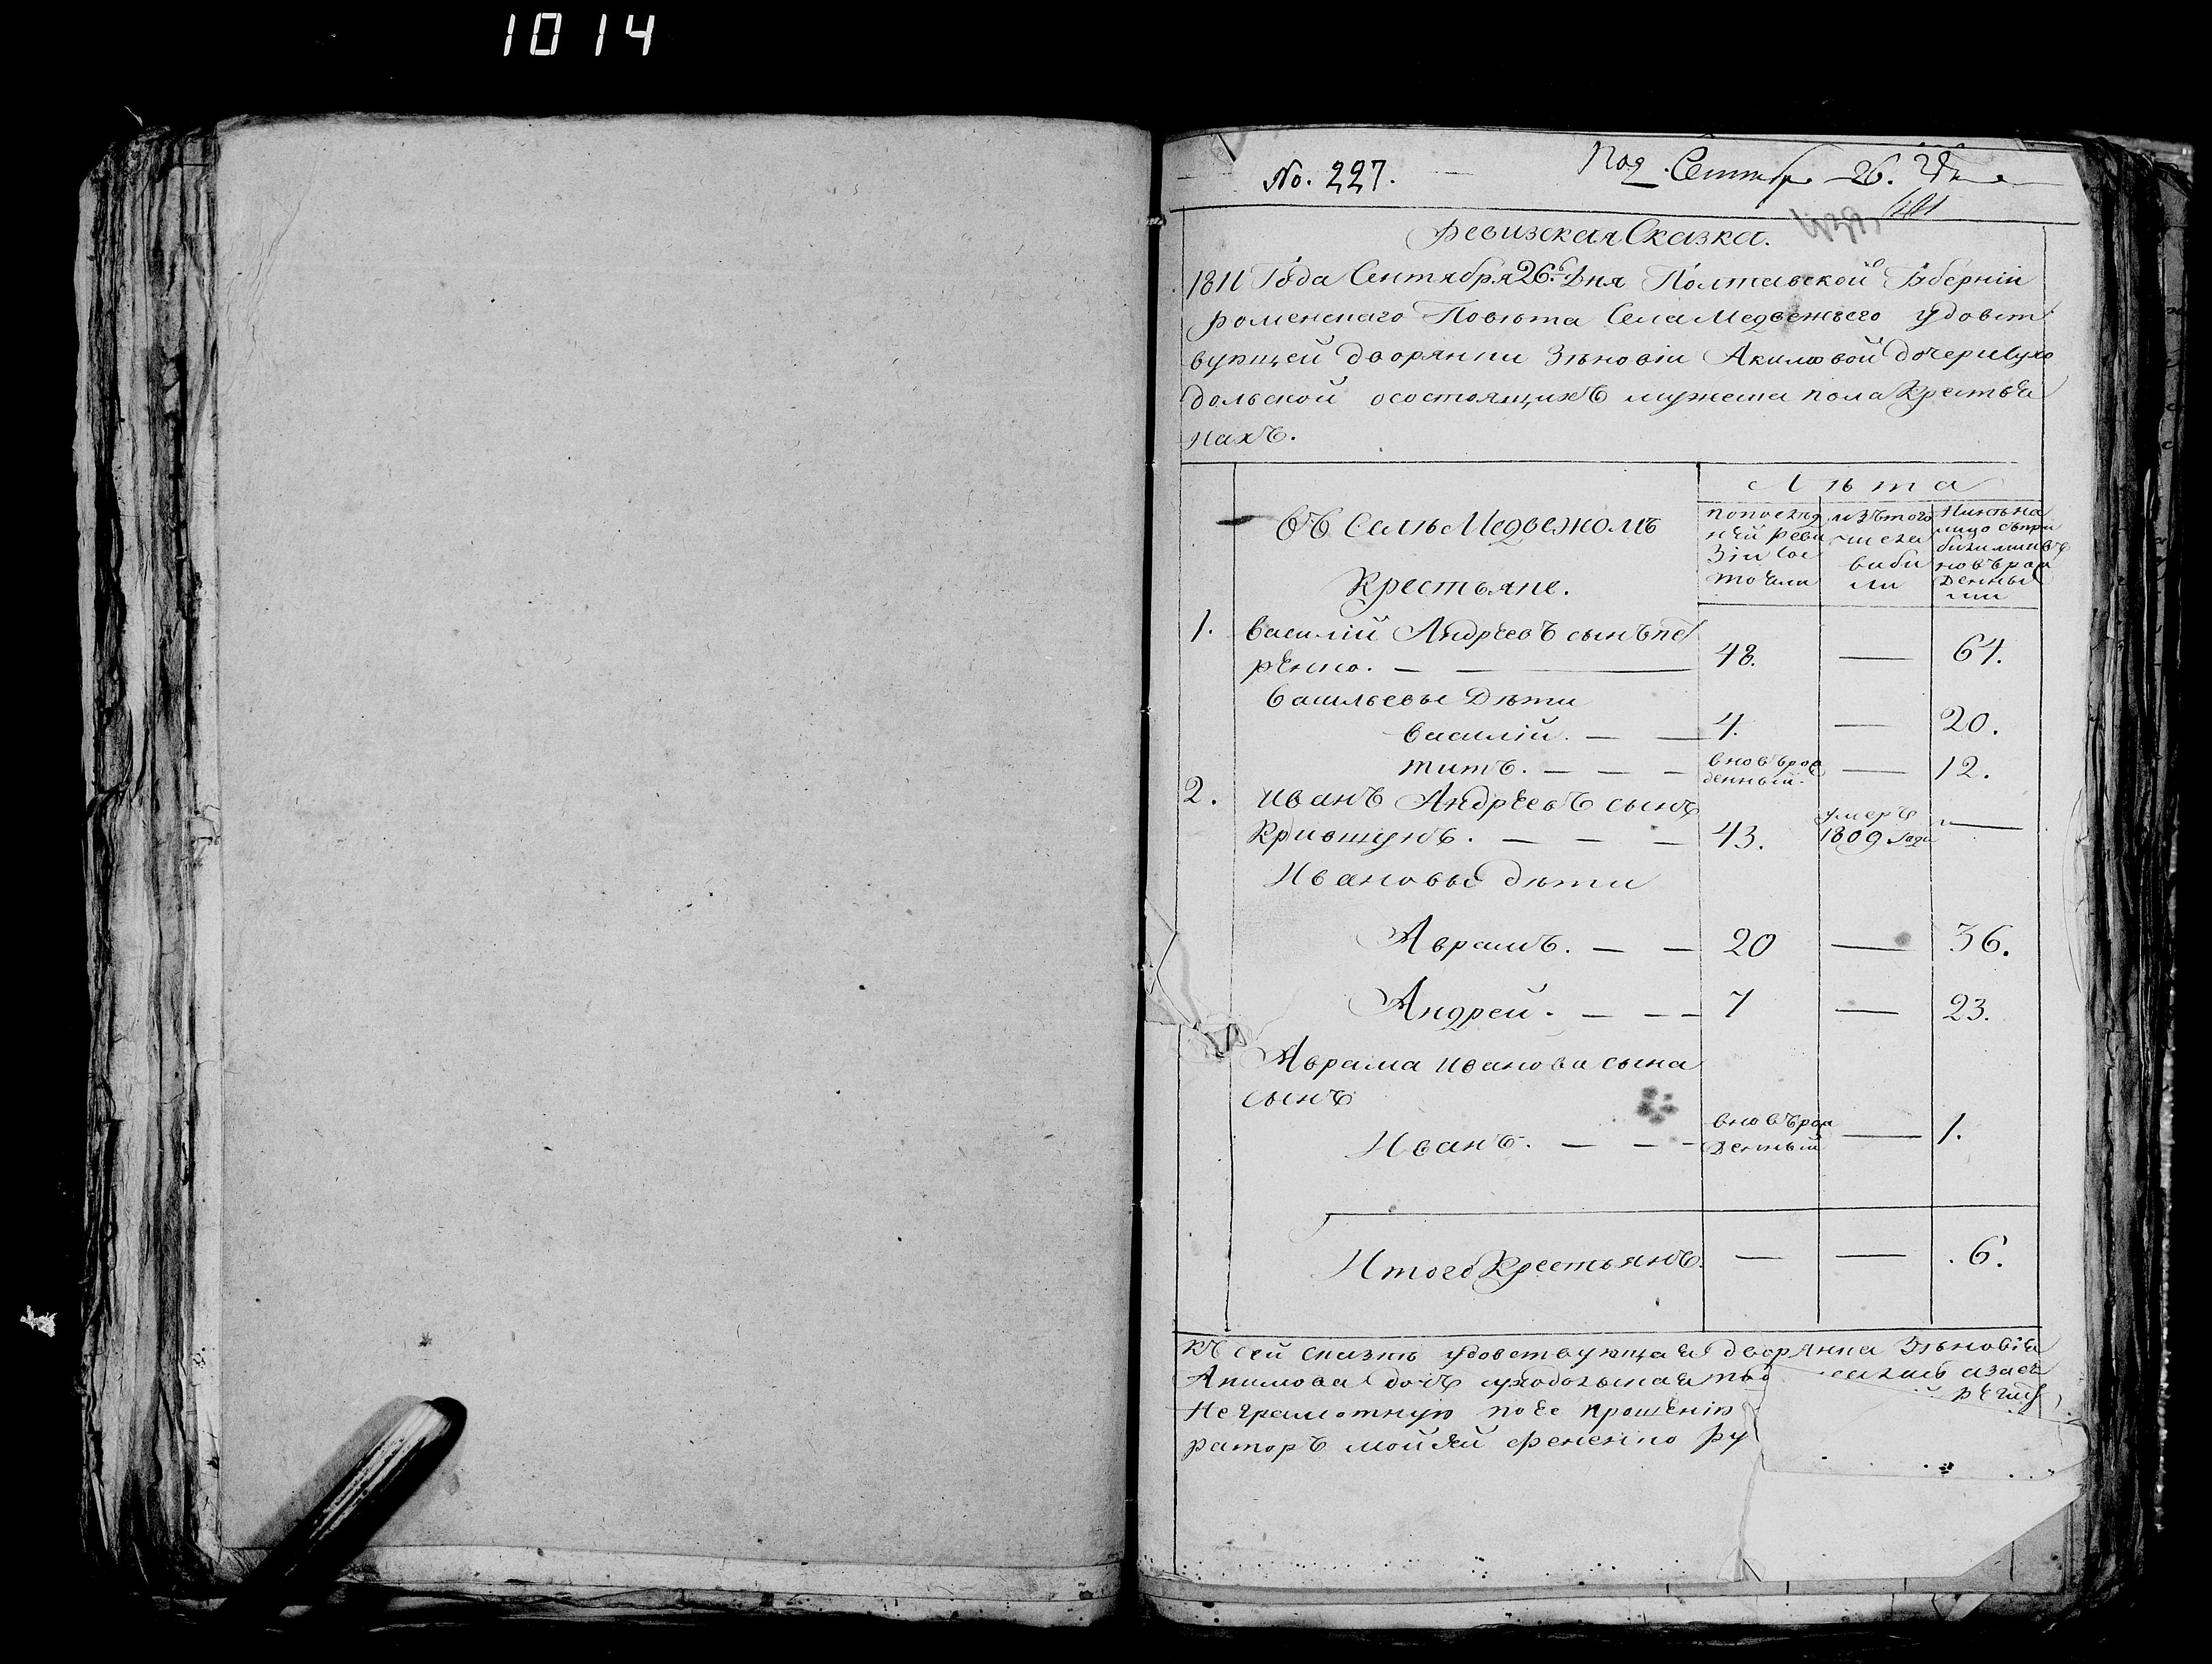 1014
No. 227.
Под. Сентября 26. дня
Ревизская Сказка.
1811 Года Сентября 26го Дня Полтавской Губерніи
Роменскаго Повѣта Села Медвежьего удовст
вующей дворянки Зѣновіи Акимовой дочери Сухо
дольской осостоящихъ мужеска пола Крестья
нахъ.
Лѣта
Въ Селѣ Медвежомъ
Крестьяне.
попослѣд
ней реви
зіи сос
тояли
изътого
числа
виби
ли
Нинѣ на
лицо съпри
билими
новърож
денны
ми
1. Василій Андреевъ сынъ Пе
ренко. — — 48. — 64.
Васильевы Дѣти
Василій. — — 4. — 20.
Титъ. — — — вновърож
денный. — 12.
2. Иванъ Андреевъ сынъ
Крившунъ. — — — 43. умеръ
1809 Года —
Ивановы дѣти
Аврамъ. — — 20 — 36.
Андрей. — — — 7 — 23.
Аврама Иванова сына
сынъ
Иванъ. — — — вновърож
денный — 1.
Итого Крестьянъ. — — 6.
Къ сей сказкѣ удовствующая дворянка Зѣновія
Акимова дочь Суходольская азаее
Неграмотную по ее прошенію
раторъ Мойсей Фененко ру